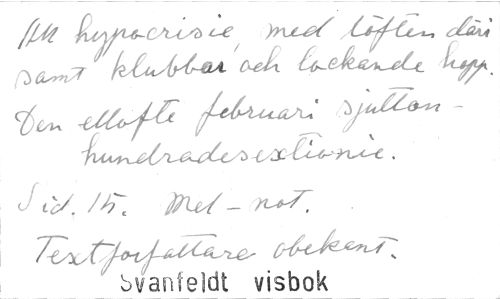 All hypocrisie, med löften däri
samt klubbar och lockande hopp.
Den ellofte februari sjutton-
hundradesextionie.
Sid. 15. Mel-not.
Textförfattare obekant.
Svanfeldt visbok